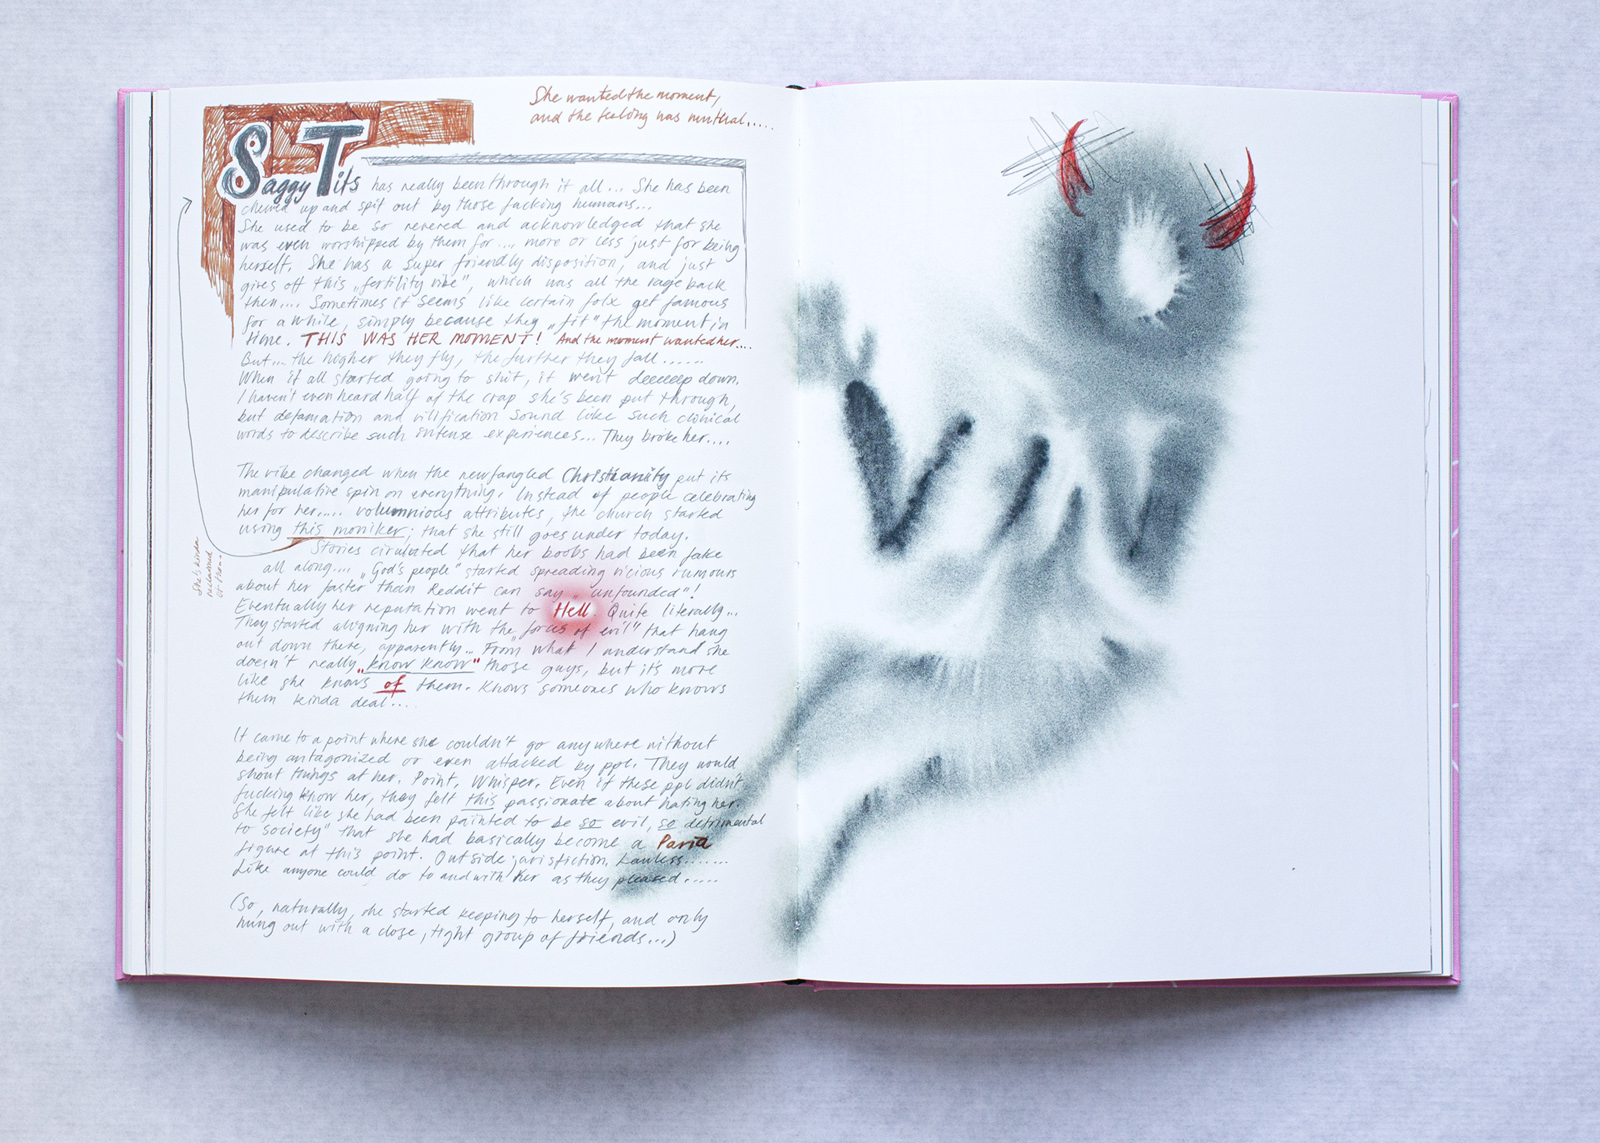 She wanted the moment,
and the feeling was mutual.....
Saggy Tits has really been through it all... She has been
chewed up and spit out by those fucking humans...
She used to be so revered and acknowledged that she
was even worshipped by them for... more or less just for being
herself. She has a super friendly disposition, and just
gives off this „fertility vibe", which was all the rage back
then.... Sometimes it seems like certain folx get famous
for a while, simply because they „fit" the moment in
time. THIS WAS HER MOMENT! And the moment wanted her....
But... the higher they fly, the further they fall......
When it all started going to shit, it went deeeeep down.
I haven't even heard half of the crap she's been put through,
but defamation and vilification sound like such clinical
words to describe such intense experiences... They broke her....
The vibe changed when the newfangled Christianity put its
manipulative spin on everything. Instead of people celebrating
her for her.... volumnious attributes, the church started
using this moniker; that she still goes under today.
She's kinda
reclaimed
Stories cirulated that her boobs had been fake
all along.... „God's people" started spreading vicious rumours
about her faster than Reddit can say „unfounded"!
Eventually her reputation went to Hell. Quite literally...
They started aligning her with the „forces of evil" that hang
out down there, apparently... From what I understand she
doesn't really „know know" those guys, but it's more
like she knows of them. Knows someones who knows
them kinda deal....
It came to a point where she couldn't go anywhere without
being antagonized or even attacked by ppl. They would
shout things at her. Point. Whisper. Even if these ppl didn't
fucking know her, they felt this passionate about hating her.
She felt like she had been painted to be so evil, so detrimental
to society" that she had basically become a Paria
figure at this point. Outside jurisfiction. Lawless.......
Like anyone could do to and with her as they pleased.....
(So, naturally, she started keeping to herself, and only
hung out with a close, tight group of friends...)